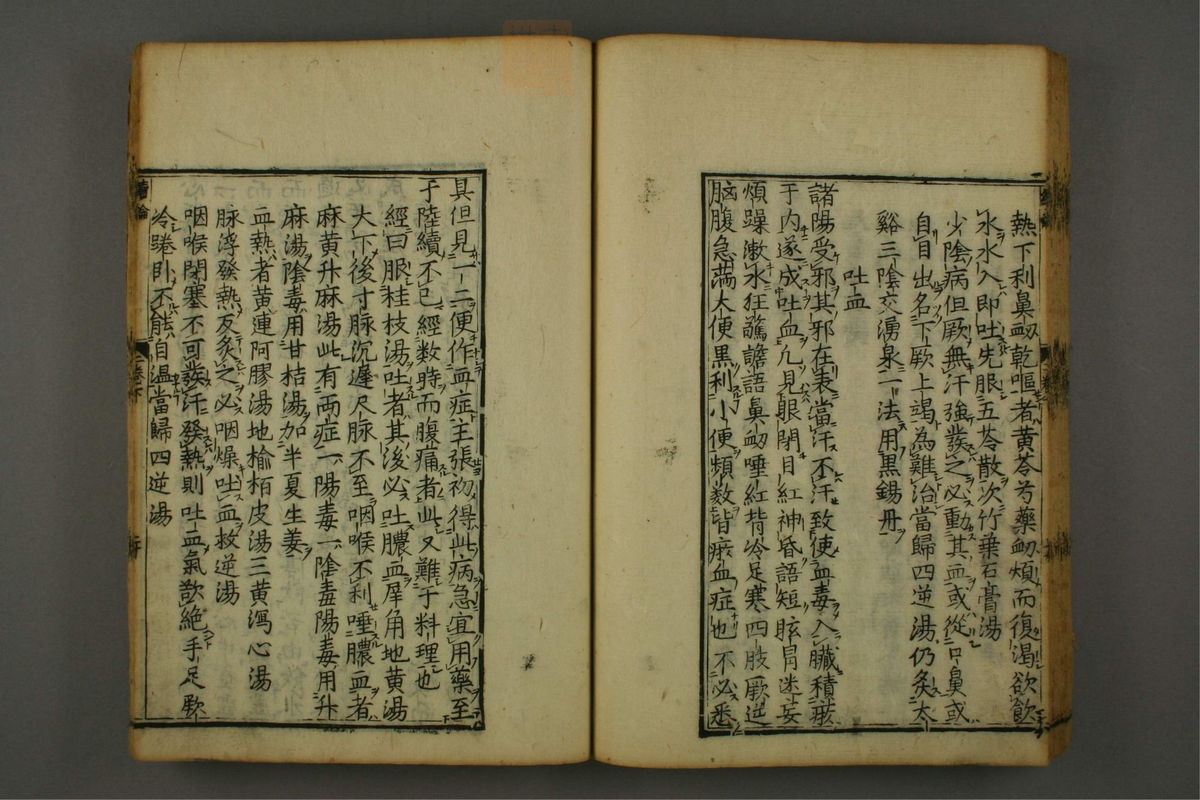 熱下利鼻衂乾嘔者黄芩芍藥衂煩而復渴欲飲
水水入即吐先服五苓散次竹葉石膏湯
少陰病但厥無汗強發之必動其血或從口鼻或
自目出名下厥上竭為難治當歸四逆湯仍灸太
谿三陰交湧泉一法用黒錫丹
吐血
諸陽受邪其邪在表當汗不汗致使血毒入臟積瘀
于内遂成吐血凡見眼閉目紅神昏語短眩冐迷妄
煩躁漱水狂譫語鼻衂唾紅背冷足寒四肢厥逆
胸腹急満大便黒利小便頻数皆瘀血症也不必悉
具但見一二便作血症主張初得此病急宜用藥至
于陸續不已經数時而腹痛者此又難于料理也
經曰服桂枝湯吐者其後必吐膿血犀角地黄湯
大下後寸脉沉遲尺脉不至咽喉不利唾膿血者
麻黄升麻湯此有両症一陽毒一陰毒陽毒用升
麻湯陰毒用甘桔湯加半夏生姜
血熱者黄連阿膠湯地榆栢皮湯三黄瀉心湯
脉浮發熱反灸之必咽燥吐血救逆湯
咽喉閉塞不可發汗發熱則吐血氣欲絶手足厥
冷踡卧不能自温當歸四逆湯
續論
卷下